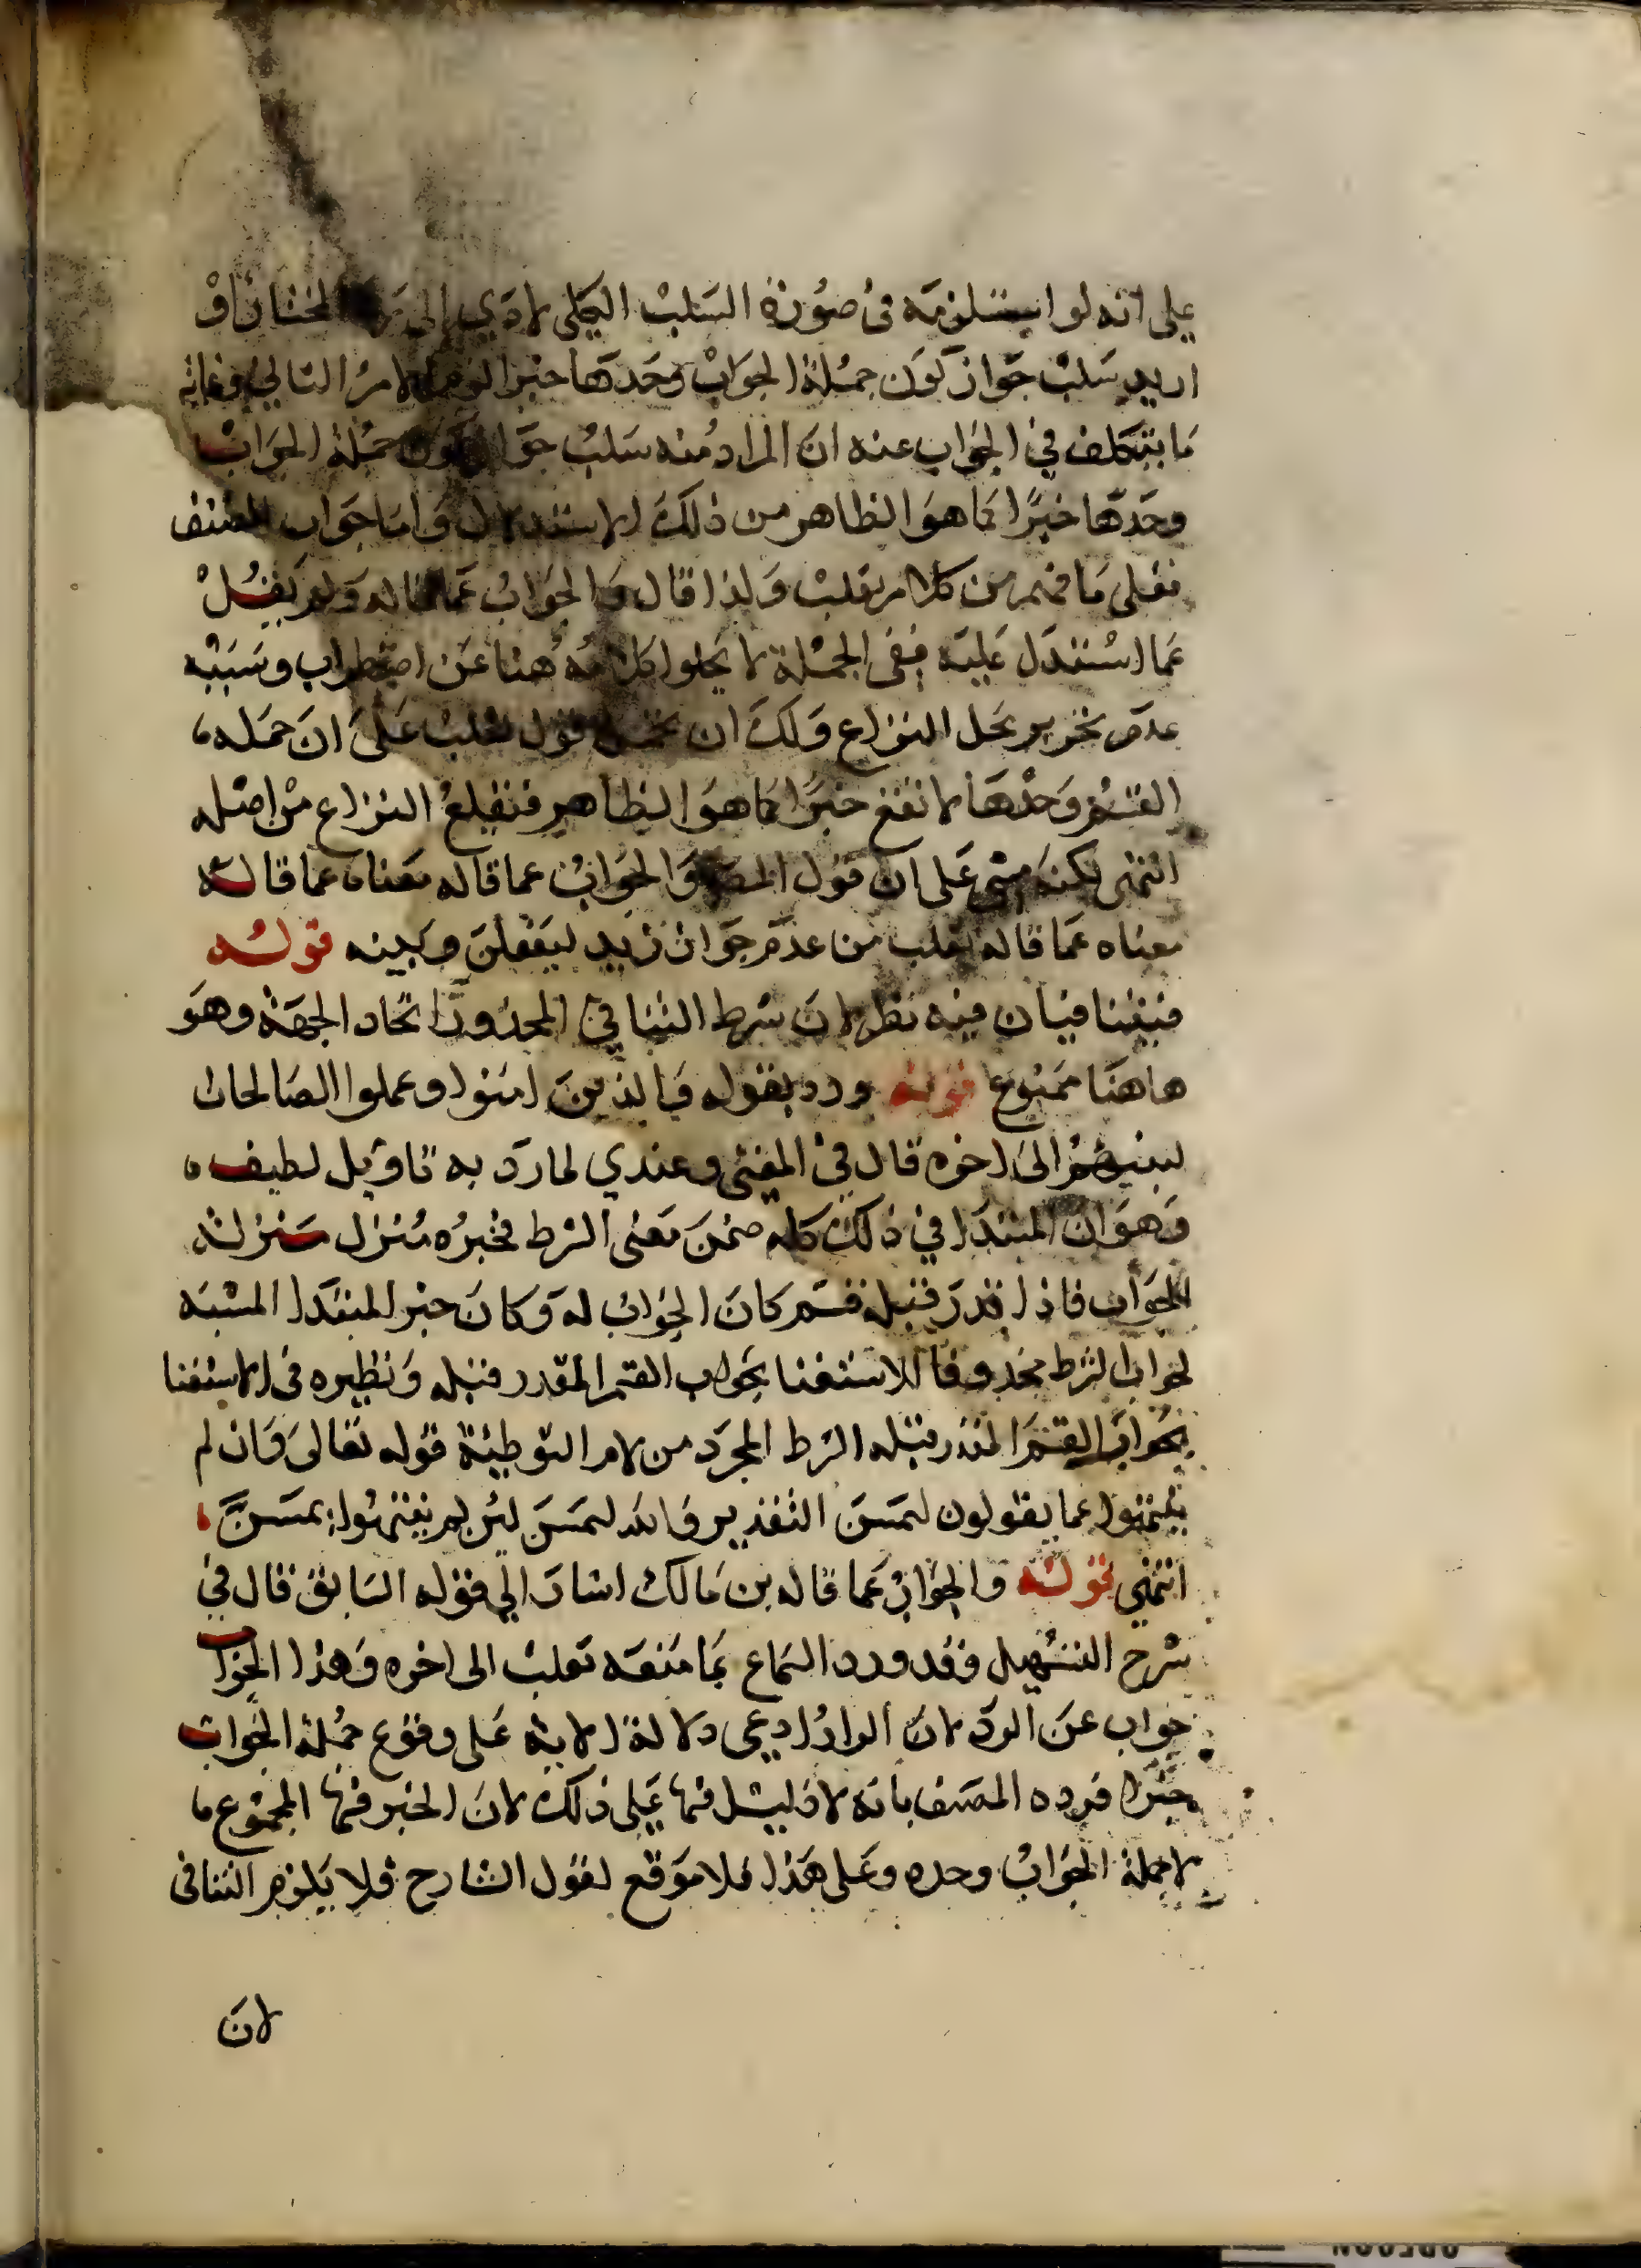 على انه لو استلزمه في صورة السلب الكلي لادي الى المختار او
اريد سلب جواز كون جملة الجواب وحدها خبرا لامر التالي وغاية
ما يتكلف في الجواب عنه ان المراد منه سلب جواز كون جملة الجواب
وحدها خبرا كما هو الظاهر من ذلك الاستدلال واما جواب المصنف
فعلى ما فهم من كلام ثعلب ولذا قال والجواب عما قاله ولم يقل
عما استدل عليه ففي الجملة لا يخلوا كلامه هنا عن اضطراب وسببه
عدم تحرير محل النزاع ولك ان تحمل قول ثعلب على ان جمله
القسم وحدها لا تقع خبرا كما هو الظاهر فنقلع النزاع من اصله
انتهى لكنه مشى على ان قول المصنف والجواب عما قاله معناه عما قاله
معناه عما قاله ثعلب من عدم جواز زيد ليفعلن وبينه قوله
فيتنافيان فيه نظر لان شرط التنافي المحذور اتحاد الجهة وهو
هاهنا ممنوع قوله ورد بقوله والذين امنوا وعملوا الصالحات
لنبوئنهم الى اخره قال في المغني وعندي لما رد به تاويل لطيف
وهو ان المبتدا في ذلك كله ضمن معنى الشرط فخبره منزل منزلة
الجواب فاذا قدر قبله قسم كان الجواب له وكان خبر المبتدا المشبه
لجواب الشرط محذوفا للاستغنا بجواب القسم المقدر قبله ونظيره في الاستغنا
بجواب القسم المقدر قبله الشرط المجرد من لام التوطئة قوله تعالى وان لم
ينتهوا عما يقولون ليمسن التقدير والله ليمسن لئن لم ينتهوا يمسن
انتهى قوله والجواب عما قاله بن مالك اشار الي قوله السابق قال في
شرح التسهيل وقد ورد السماع بما منعه ثعلب الى اخره وهذا الجواب
جواب عن الرد لان الراد ادعى دلالة الاية على وقوع جملة الجواب
خبرا فرده المصنف بانه لا دليل فيها على ذلك لان الخبر فيها المجموع
لا جملة الجواب وحده وعلى هذا فلا موقع لقول الشارح فلا يلزم التنافى
لان